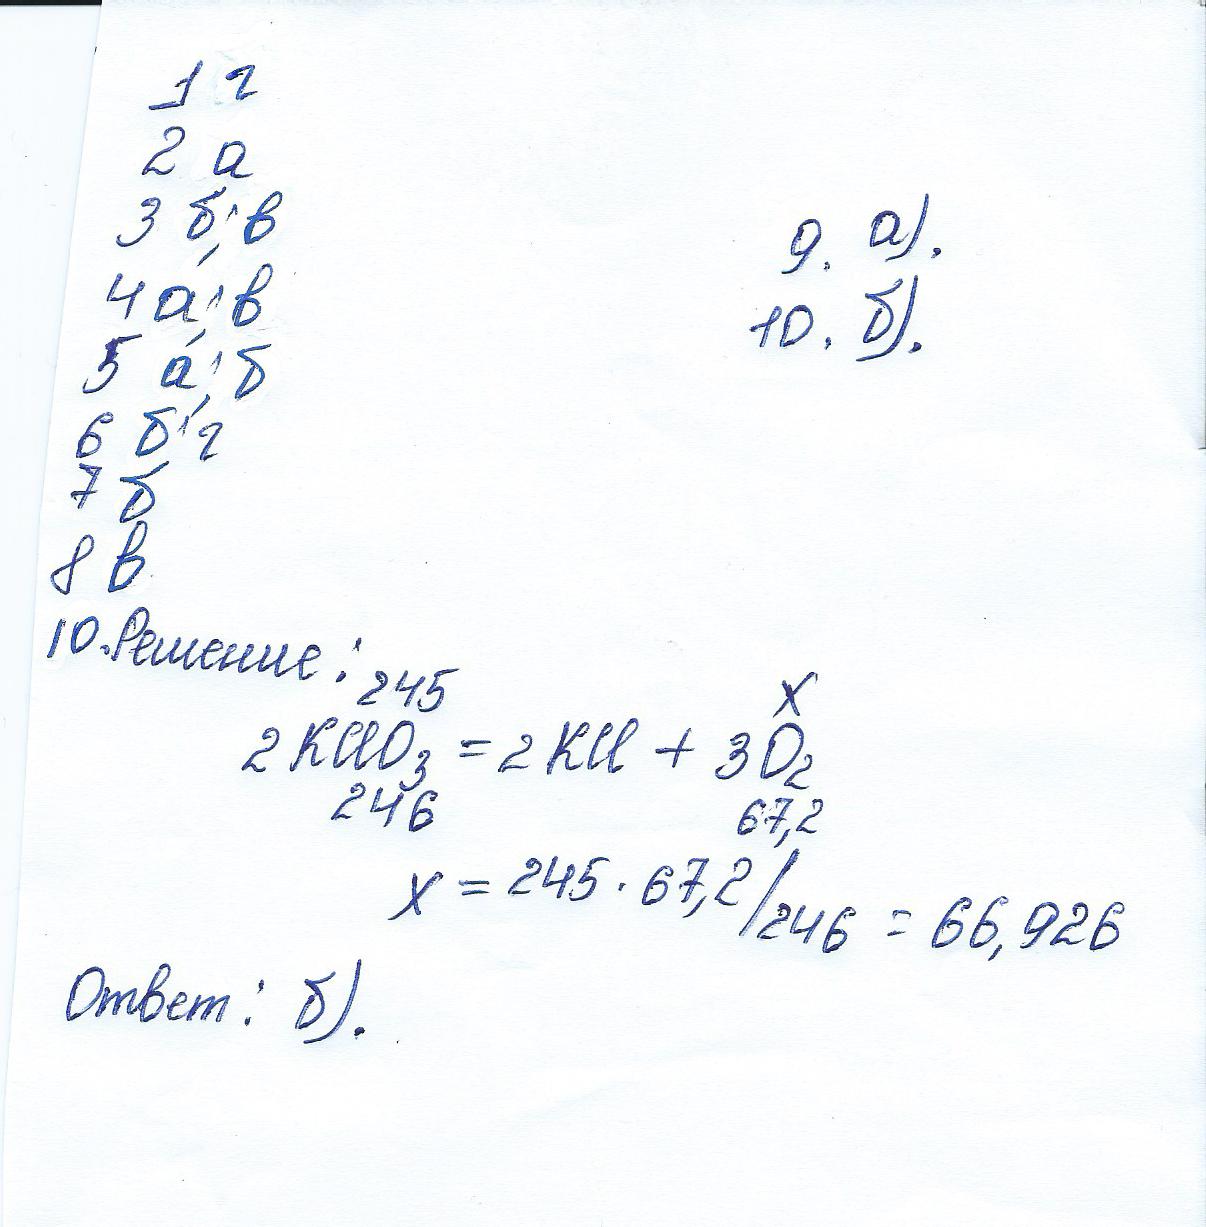 1 г
2 а
3 б; в
4 а; в
5 а; б
6 б; г
7 б
8 в
9. а).
10. б).
10. Решение:
245 X
2KClO3 = 2KCl + 3O2
246 67,2
X = 245 · 67,2/246 = 66,926
Ответ: б).